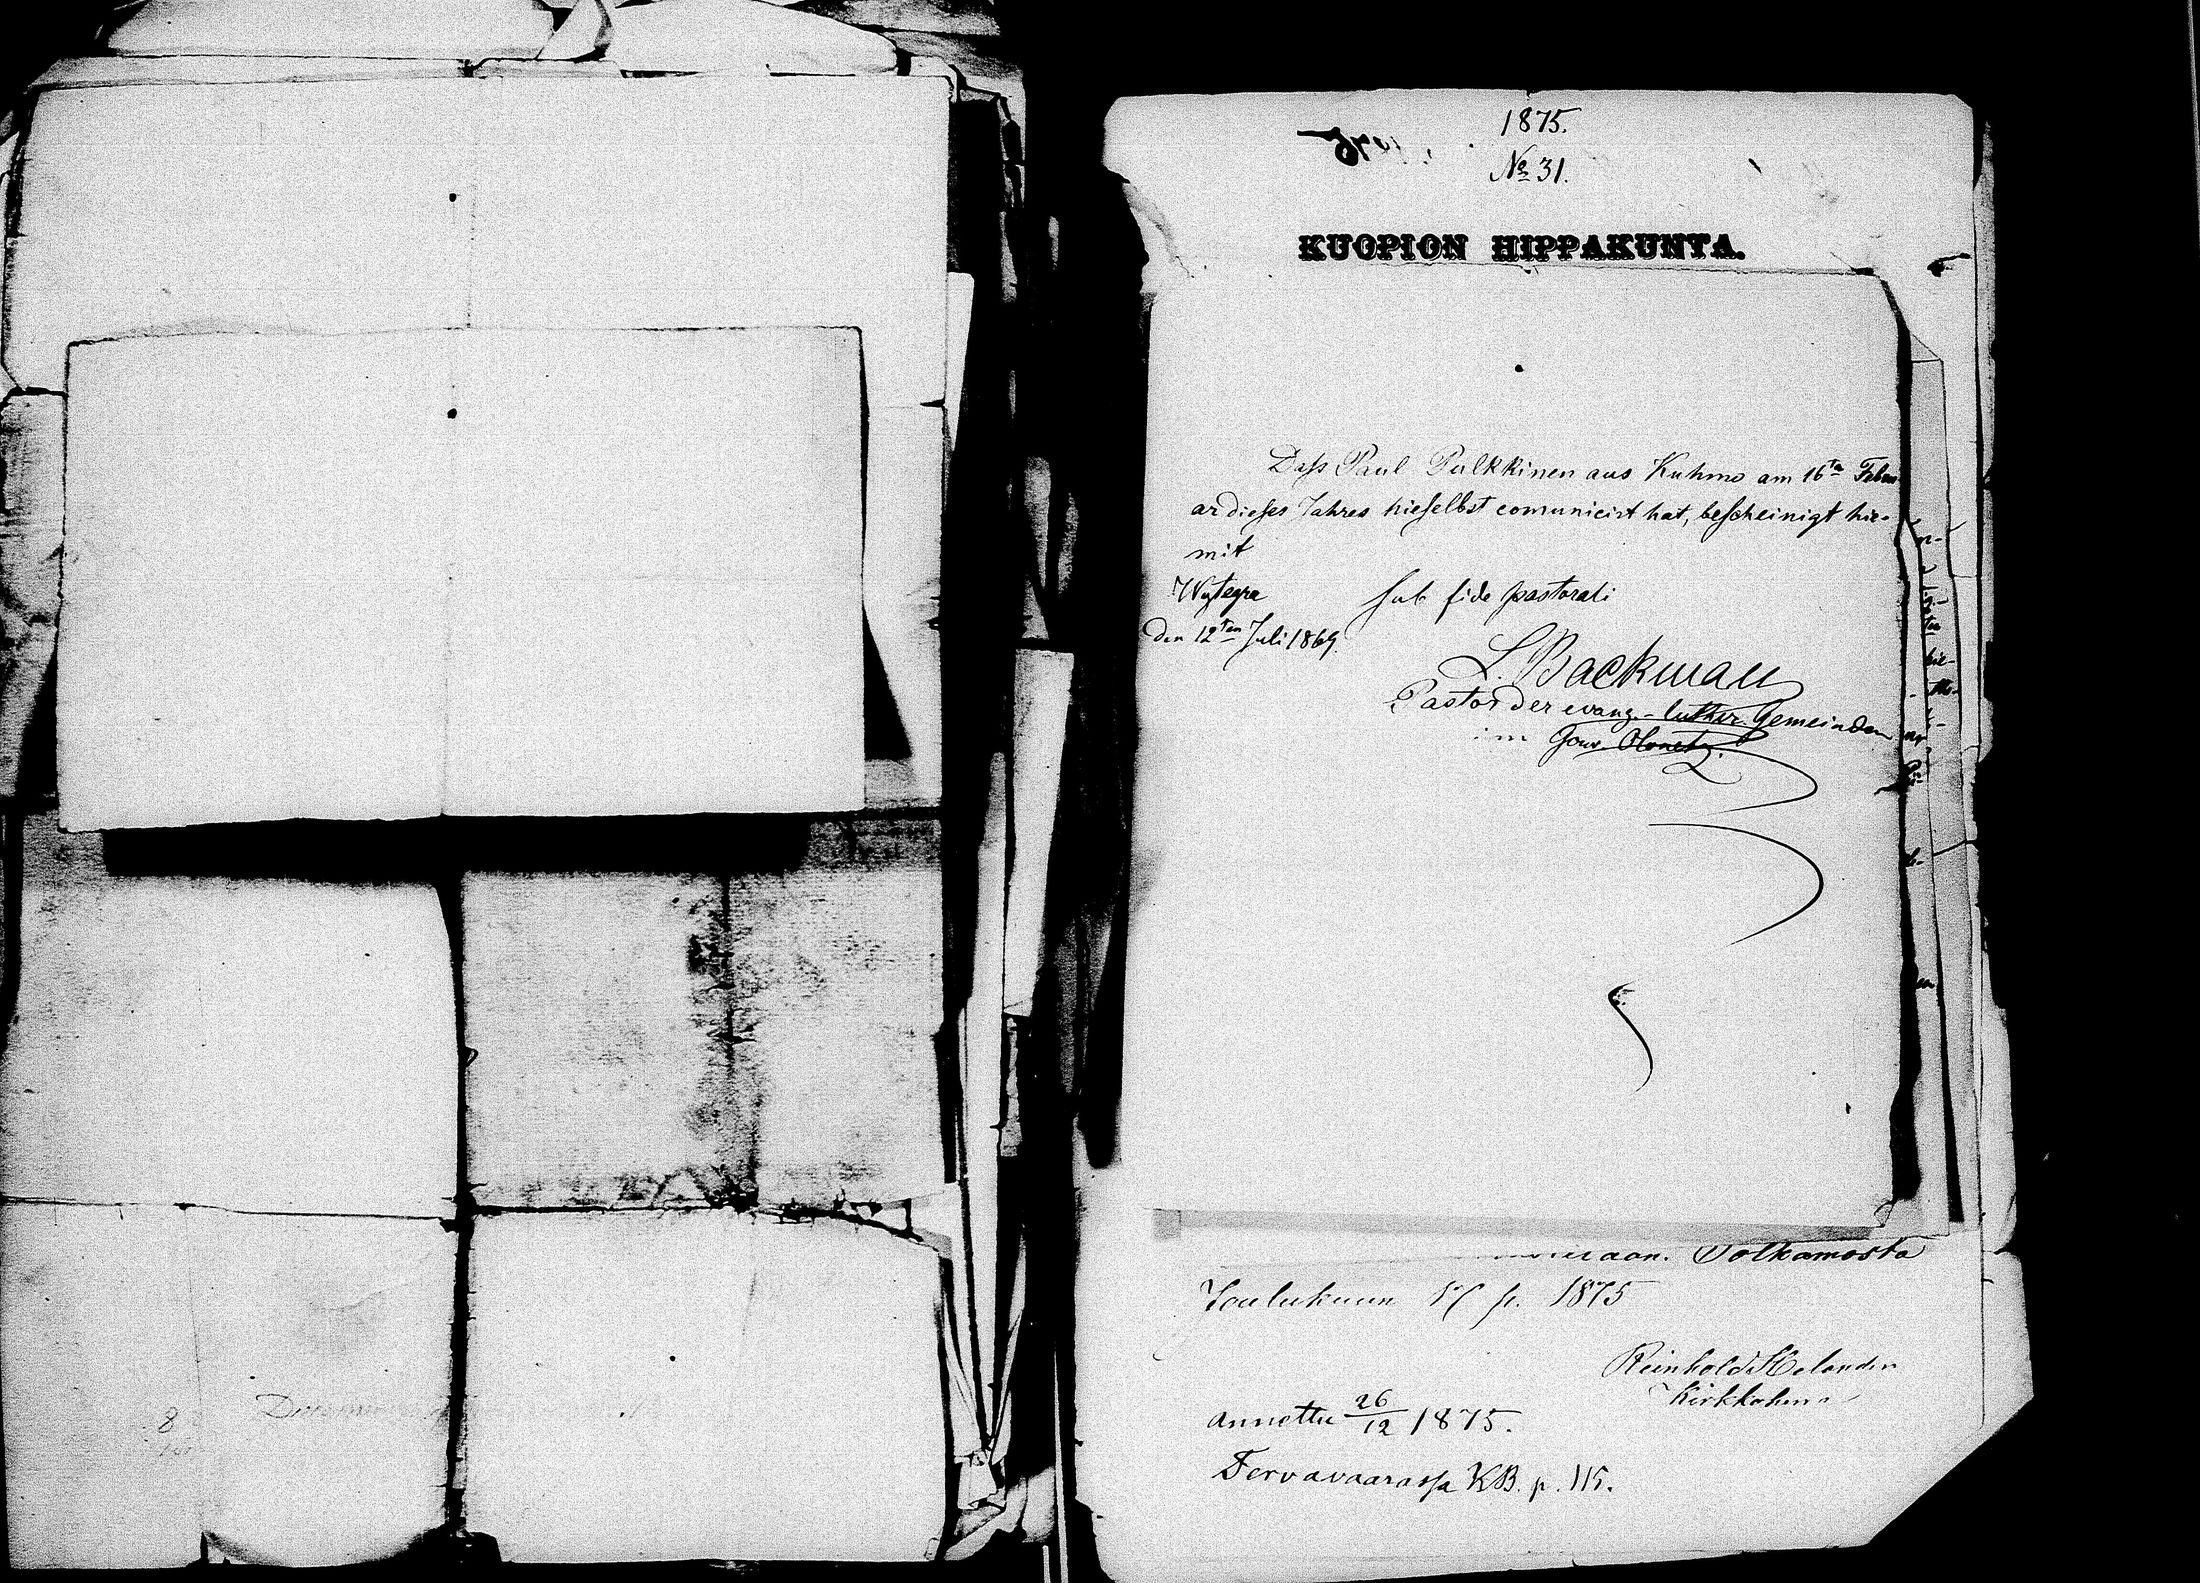 1875.
№ 31.
KUOPION HIPPAKUNTA.
Daſs Paul Pulkkinen aus Kuhmo am 16ten Febru
ar dieſes Jahres hieſelbst comunicirt hat, beſcheinigt hie-
mit
Wytegra
sub fide pastorali
den 12ten Juli 1869.
L. Backman
Pastor der evang.-luther. Gemeinden
im Gouv. Olonetz.
Polkamosta
Joulukuun 17 p. 1875
Reinhold Melander
annettu 26/12 1875.
Tervavaarassa KB. p. 115.